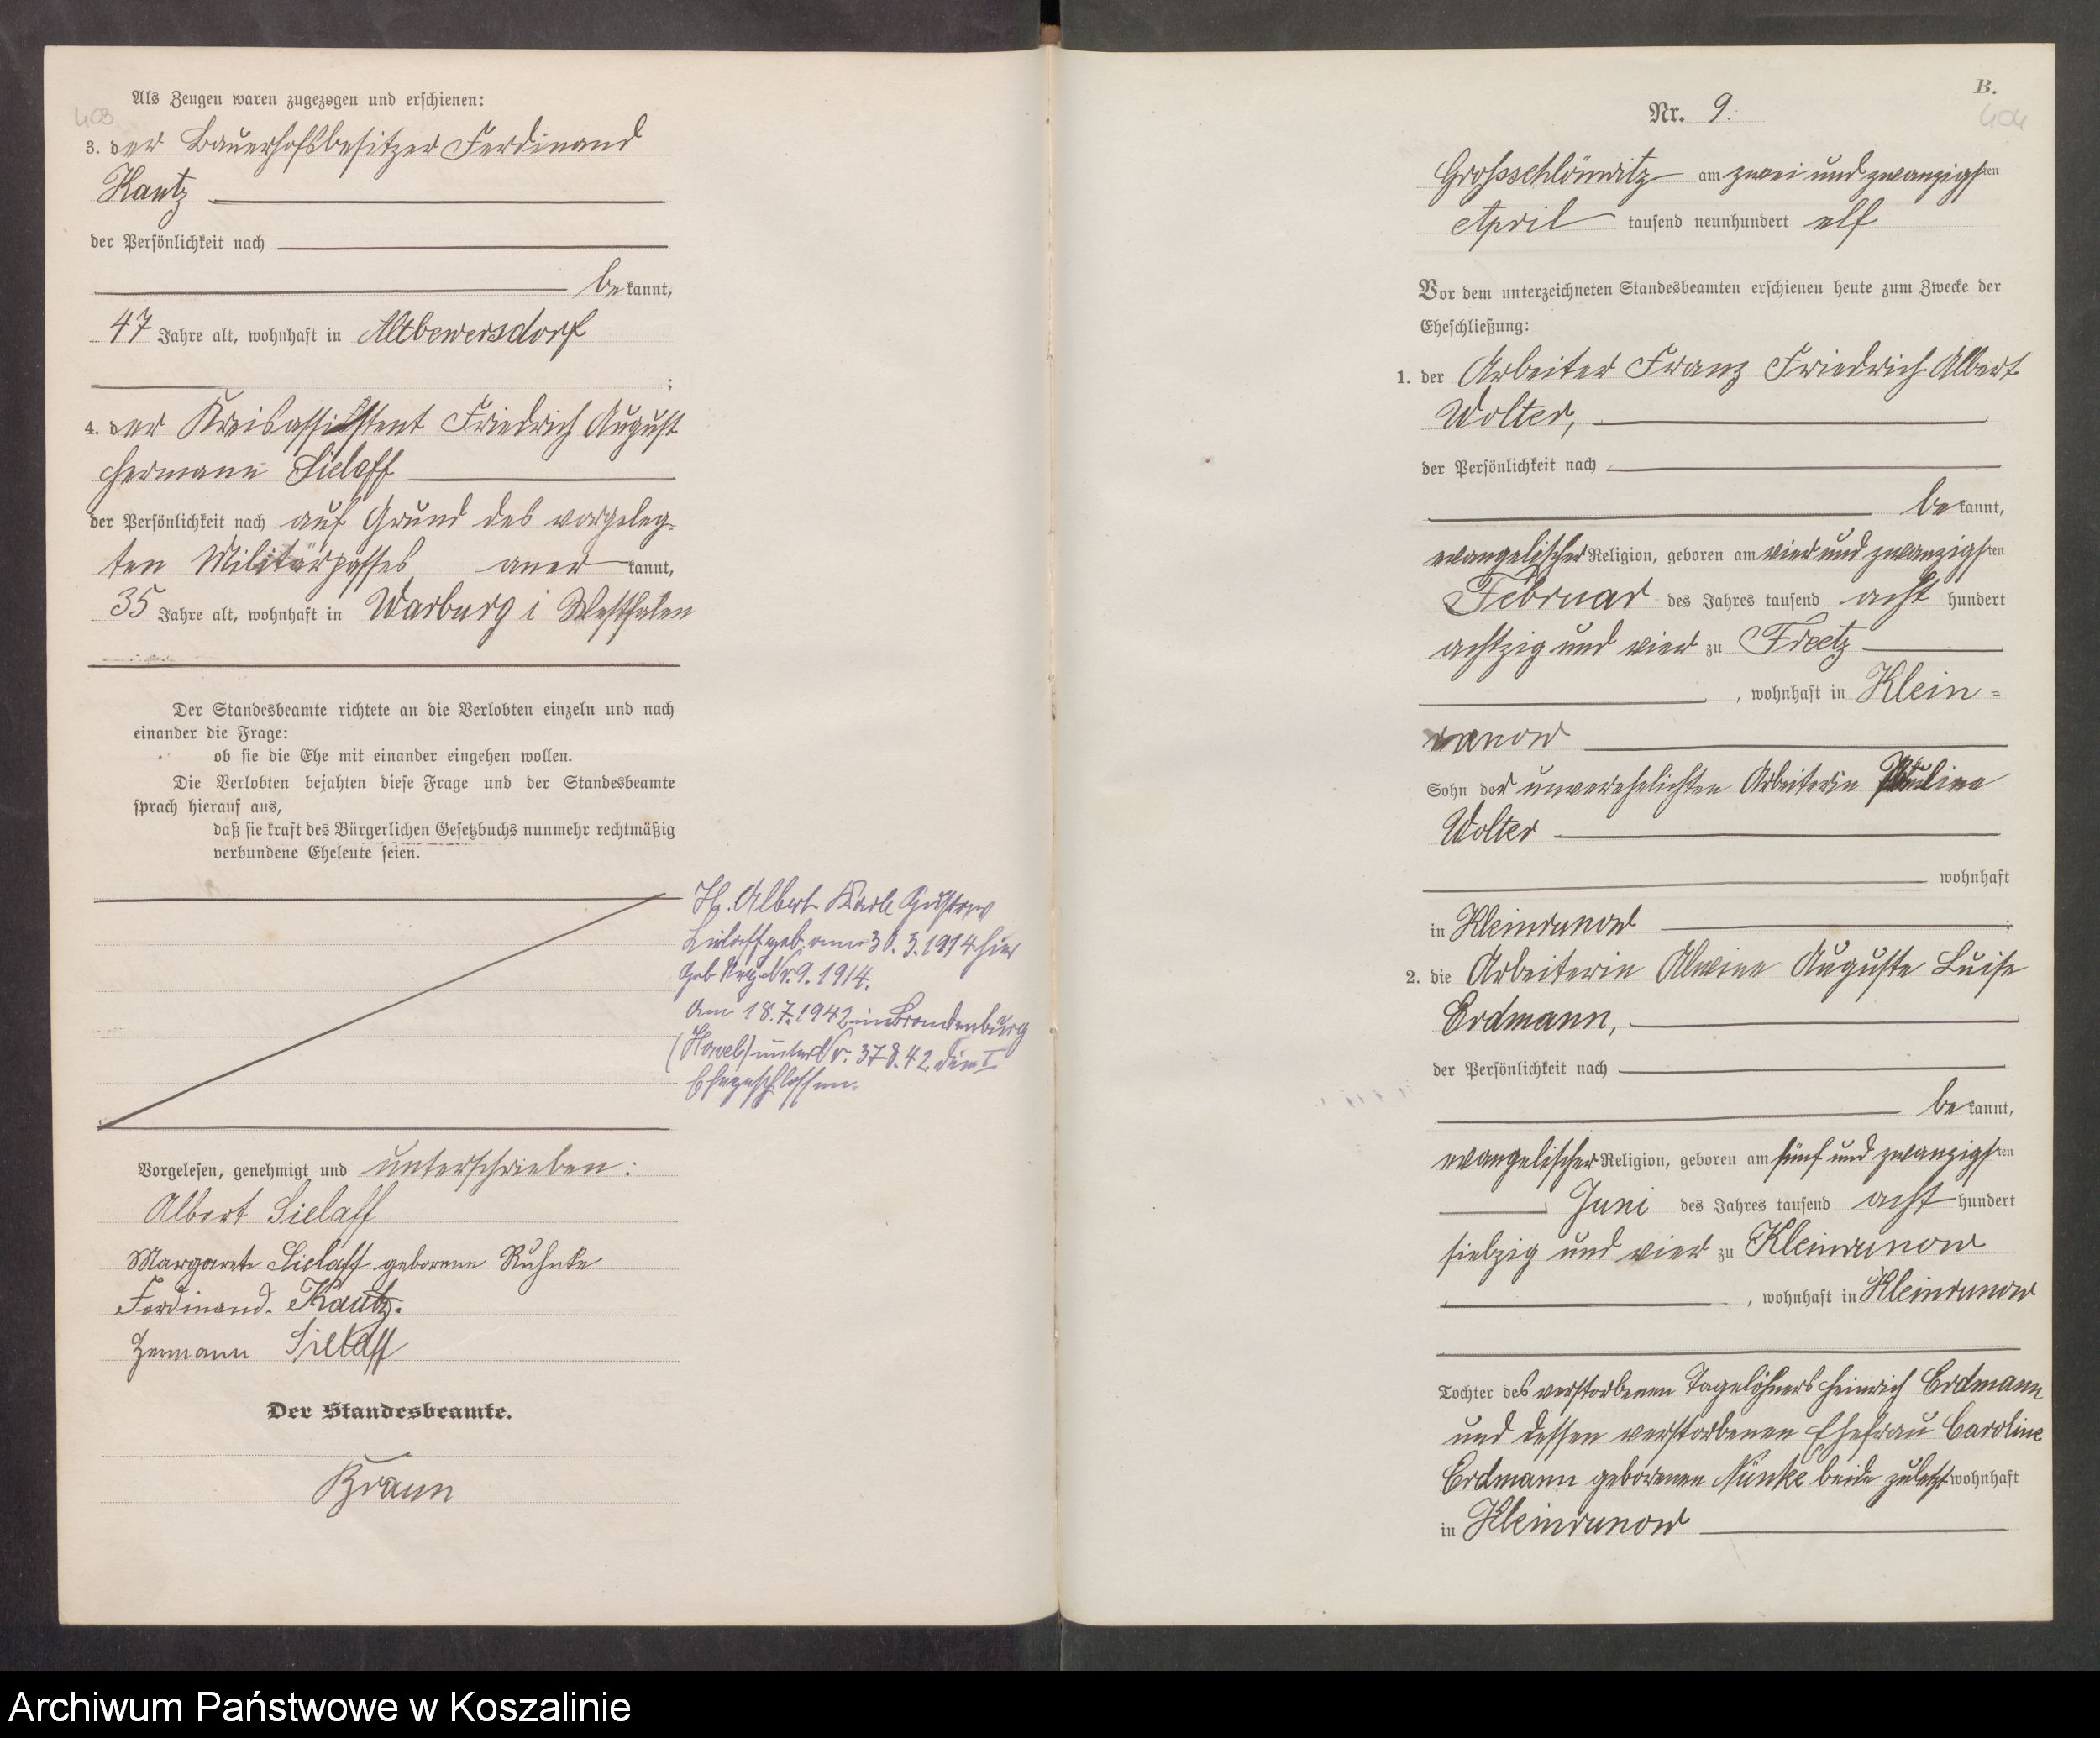 403
Als Zeugen waren zugezogen und erschienen:
3. der Bauerhofsbesitzer Ferdinand
Kautz
der Persönlichkeit nach
bekannt,
47 Jahre alt, wohnhaft in Altbewersdorf
;
4. der Kreisassistent Friedrich August
Hermann Sielaff
der Persönlichkeit nach auf Grund des vorgeleg-
ten Militärpasses anerkannt,
35 Jahre alt, wohnhaft in Warburg i Westfalen
Der Standesbeamte richtete an die Verlobten einzeln und nach
einander die Frage:
ob sie die Ehe mit einander eingehen wollen.
Die Verlobten bejahten diese Frage und der Standesbeamte
sprach hierauf aus,
daß sie kraft des Bürgerlichen Gesetzbuchs nunmehr rechtmäßig
verbundene Eheleute seien.
Albert Karl Gustav
Sielaff geb. am 30. 3. 1914 hier
Geb Reg Nr. 9. 1914.
Am 18.7.1942 in Brandenburg
(Havel) unter Nr. 378.42 die I
Ehe geschlossen.
Vorgelesen, genehmigt und unterschrieben:
Albert Sielaff
Margarete Sielaff geborene Ruhnke
Ferdinand. Kautz.
Hermann Sielaff
Der Standesbeamte.
Braun
B.
404
Nr. 9.
Grossschlönwitz am zwei und zwanzigsten
April tausend neunhundert elf
Vor dem unterzeichneten Standesbeamten erschienen heute zum Zwecke der
Eheschließung:
1. der Arbeiter Franz Friedrich Albert
Wolter,
der Persönlichkeit nach
bekannt,
evangelischer Religion, geboren am vier und zwanzigsten
Februar des Jahres tausend acht hundert
achtzig und vier zu Freetz
, wohnhaft in Klein=
runow
Sohn der unverehelichten Arbeiterin Pauline
Wolter
wohnhaft
in Kleinrunow ;
2. die Arbeiterin Alwine Auguste Luise
Erdmann,
der Persönlichkeit nach
bekannt,
evangelischer Religion, geboren am fünf und zwanzigsten
Juni des Jahres tausend acht hundert
siebzig und vier zu Kleinrunow
, wohnhaft in Kleinrunow
Tochter des verstorbenen Tagelöhners Heinrich Erdmann
und dessen verstorbenen Ehefrau Caroline
Erdmann geborenen Nünke beide zuletzt wohnhaft
in Kleinrunow
Archiwum Państwowe w Koszalinie